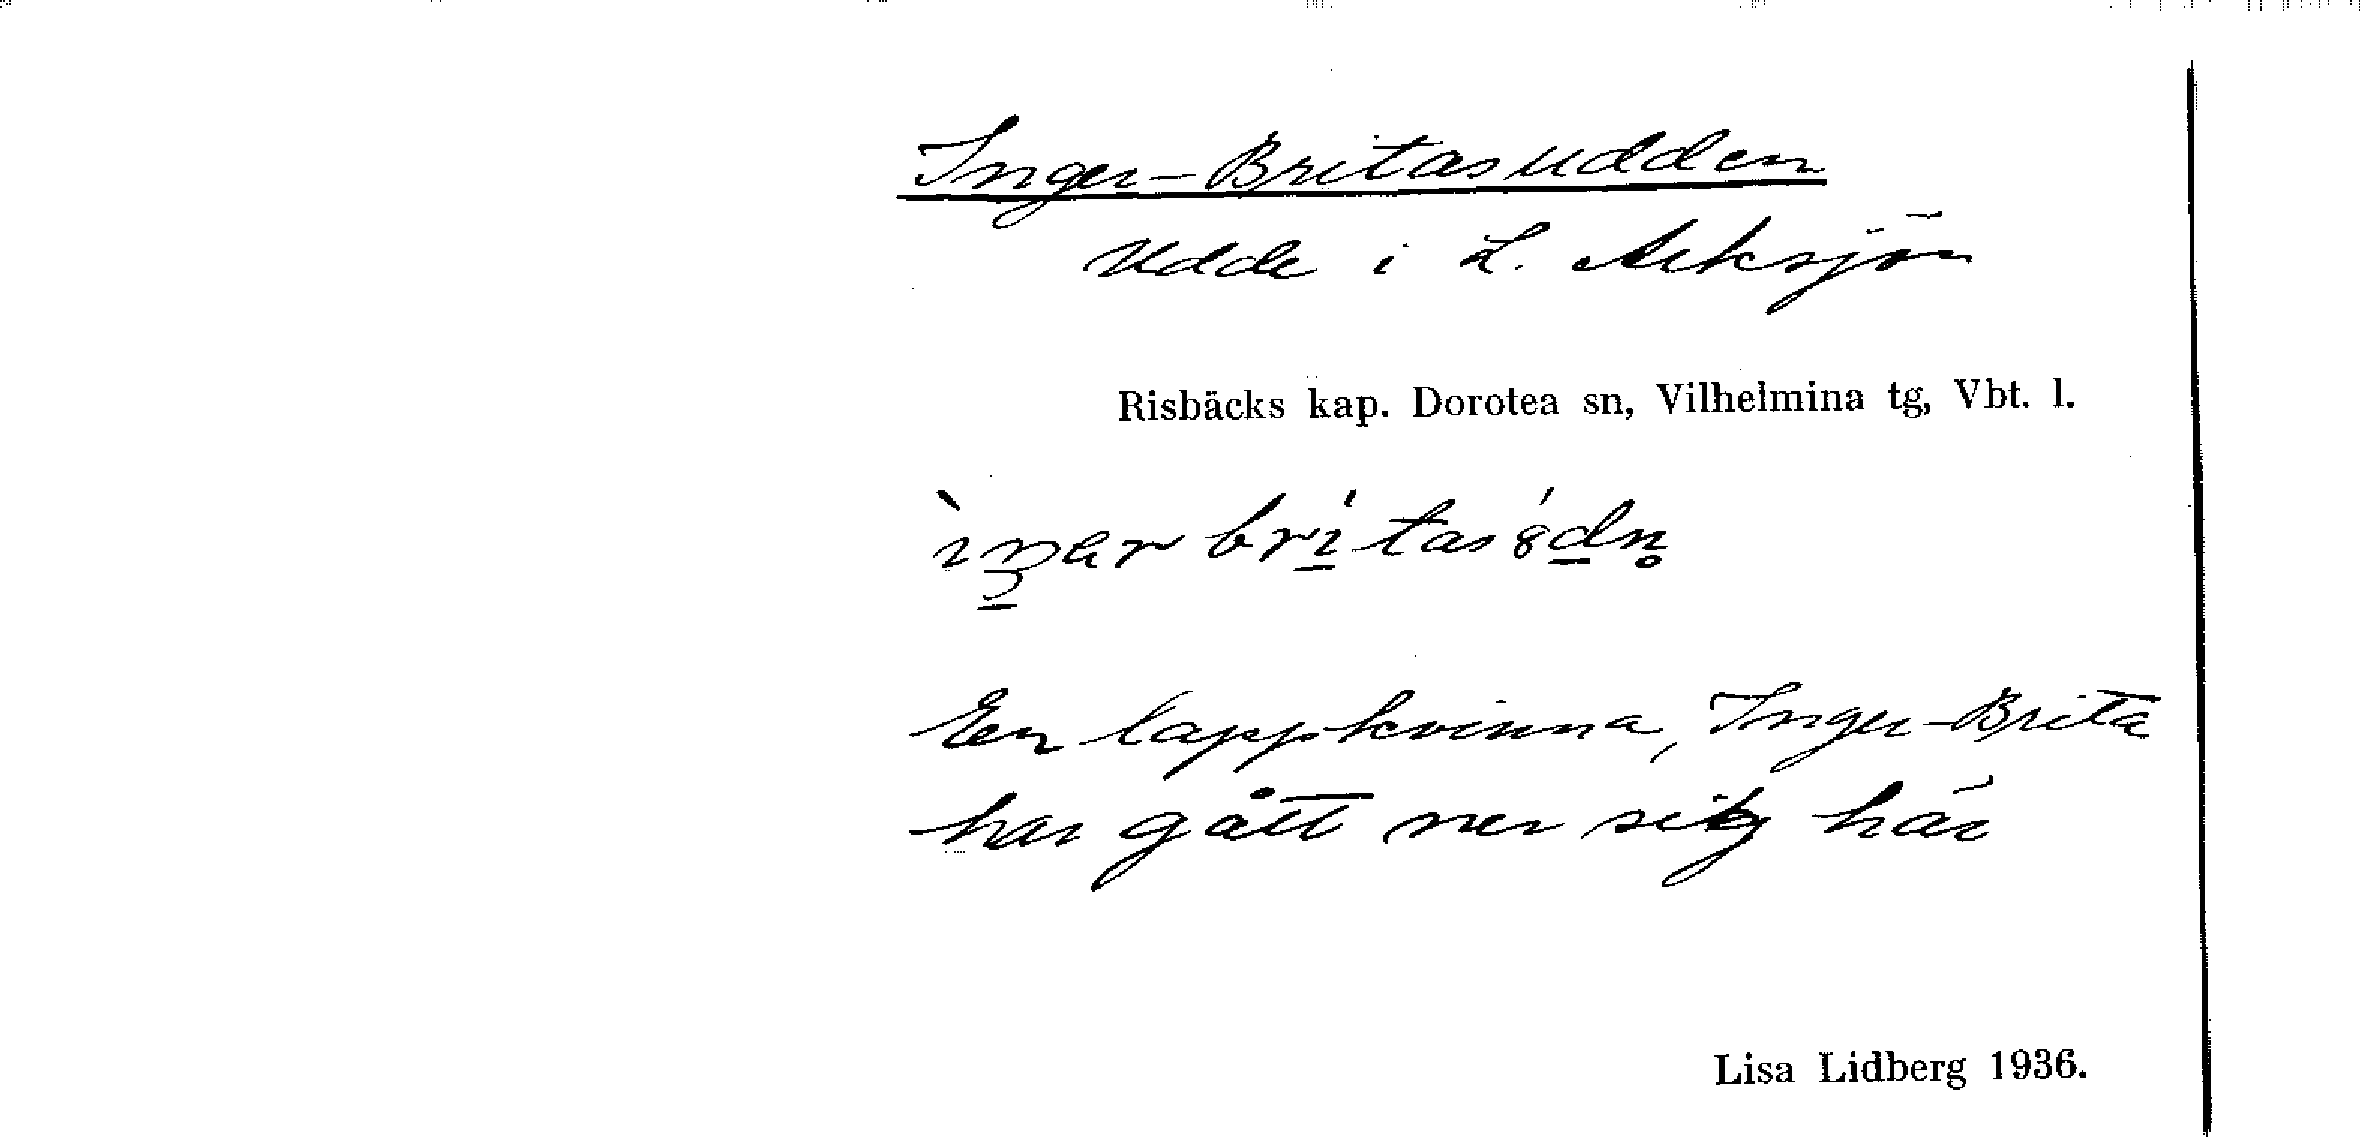 Inger-Britasudden
Udde i L. Arksjön
Risbäcks kap. Dorotea sn, Vilhelmina tg, Vbt. l.
En lappkvinna, Inger-Brita
har gått ner sig här
Lisa Lidberg 1936.